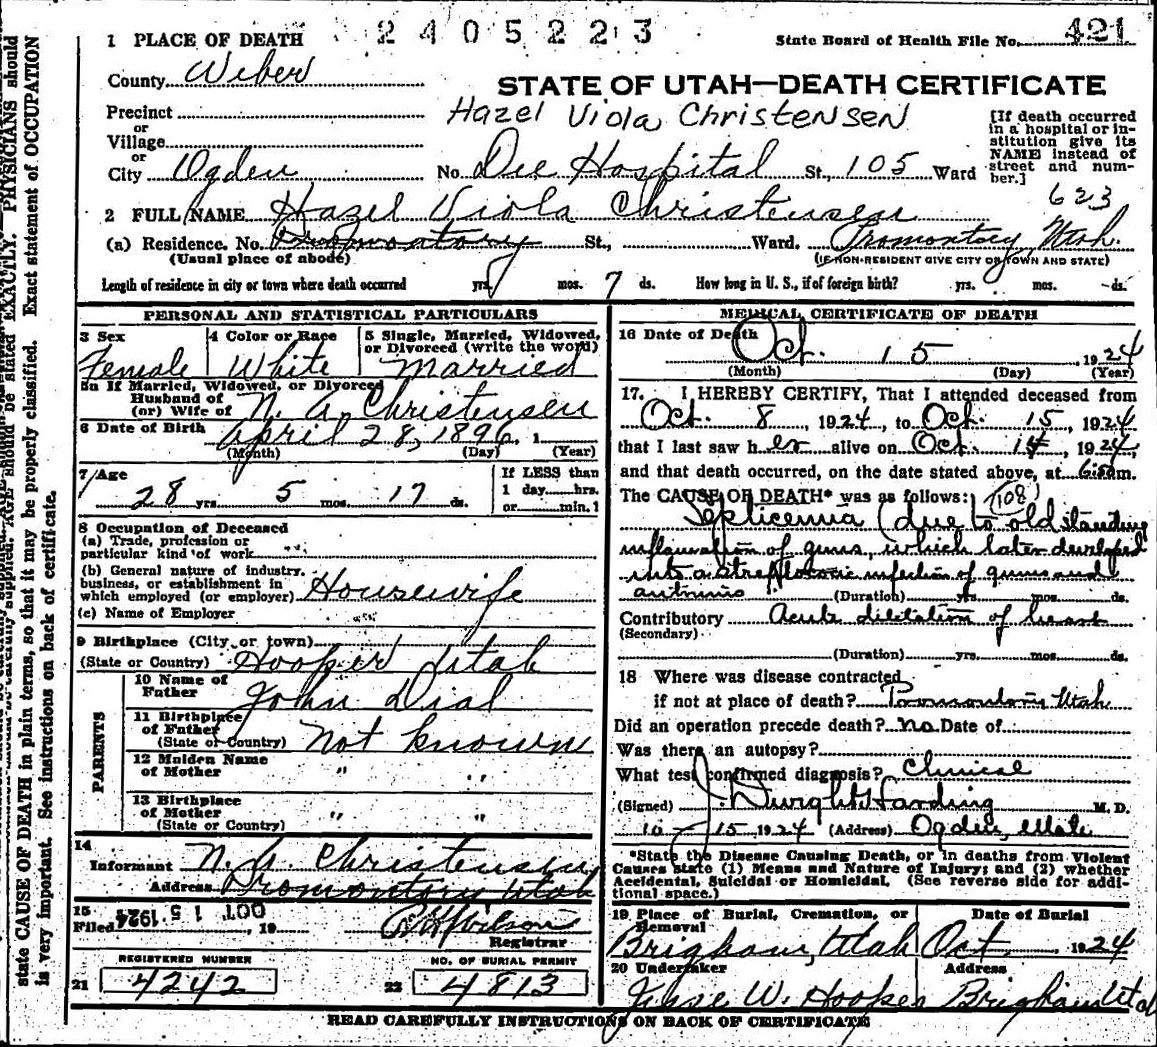 2405223
State Board of Health File No. 421
1 PLACE OF DEATH
County Weber
STATE OF UTAH—DEATH CERTIFICATE
Precinct
Hazel Viola Christensen
or
Village
or
City Ogden No. Dee Hospital St., 105 Ward
[If death occurred in a hospital or institution give its NAME instead of street and number.]
623
2 FULL NAME Hazel Viola Christensen
(a) Residence. No. Promontory St., Ward. Promontory Utah.
(Usual place of abode) (IF NON-RESIDENT GIVE CITY OR TOWN AND STATE)
Length of residence in city or town where death occurred yrs. mos. 7 ds. How long in U. S., if of foreign birth? yrs. mos. ds.
PERSONAL AND STATISTICAL PARTICULARS
3 Sex
Female
4 Color or Race
White
5 Single, Married, Widowed, or Divorced (write the word)
Married
5a If Married, Widowed, or Divorced
Husband of
(or) Wife of N. A. Christensen
6 Date of Birth April 28, 1896. 1
(Month) (Day) (Year)
7 Age
28 yrs. 5 mos. 17 ds.
If LESS than
1 day hrs.
or min.
8 Occupation of Deceased
(a) Trade, profession or
particular kind of work
(b) General nature of industry,
business, or establishment in
which employed (or employer) Housewife
(c) Name of Employer
9 Birthplace (City or town)
(State or Country) Hooper Utah
PARENTS
10 Name of
Father John Dial
11 Birthplace
of Father
(State or Country) Not known
12 Maiden Name
of Mother " "
13 Birthplace
of Mother " "
(State or Country)
14
Informant N. A. Christensen
Address Promontory Utah
15
Filed OCT 15 1924, 19
Wilson
Registrar
REGISTERED NUMBER
21 4242
NO. OF BURIAL PERMIT
22 4813
MEDICAL CERTIFICATE OF DEATH
16 Date of Death
Oct. 15 1924
(Month) (Day) (Year)
17. I HEREBY CERTIFY, That I attended deceased from
Oct. 8, 1924, to Oct. 15, 1924
that I last saw her alive on Oct. 14, 1924,
and that death occurred, on the date stated above, at 6:50am.
The CAUSE OF DEATH* was as follows: 108
Septicemia (due to old standing
inflamation of gums, which later developed
into a streptococcic infection of gums and
(Duration) yrs. mos. ds.
Contributory Acute dilitation of heart
(Secondary)
(Duration) yrs. mos. ds.
18 Where was disease contracted
if not at place of death? Promontory Utah
Did an operation precede death? no Date of
Was there an autopsy?
What test confirmed diagnosis? Clinical
(Signed) J. Dwight Harding M. D.
10 - 15, 1924 (Address) Ogden, Utah
*State the Disease Causing Death, or in deaths from Violent
Causes state (1) Means and Nature of Injury; and (2) whether
Accidental, Suicidal or Homicidal. (See reverse side for additional space.)
19 Place of Burial, Cremation, or Removal
Brigham, Utah
Date of Burial
Oct 1924
20 Undertaker
Jesse W. Hooper
Address
Brigham Utah
READ CAREFULLY INSTRUCTIONS ON BACK OF CERTIFICATE
state CAUSE OF DEATH in plain terms, so that it may be properly classified. Exact statement of OCCUPATION
is very important. See instructions on back of certificate.